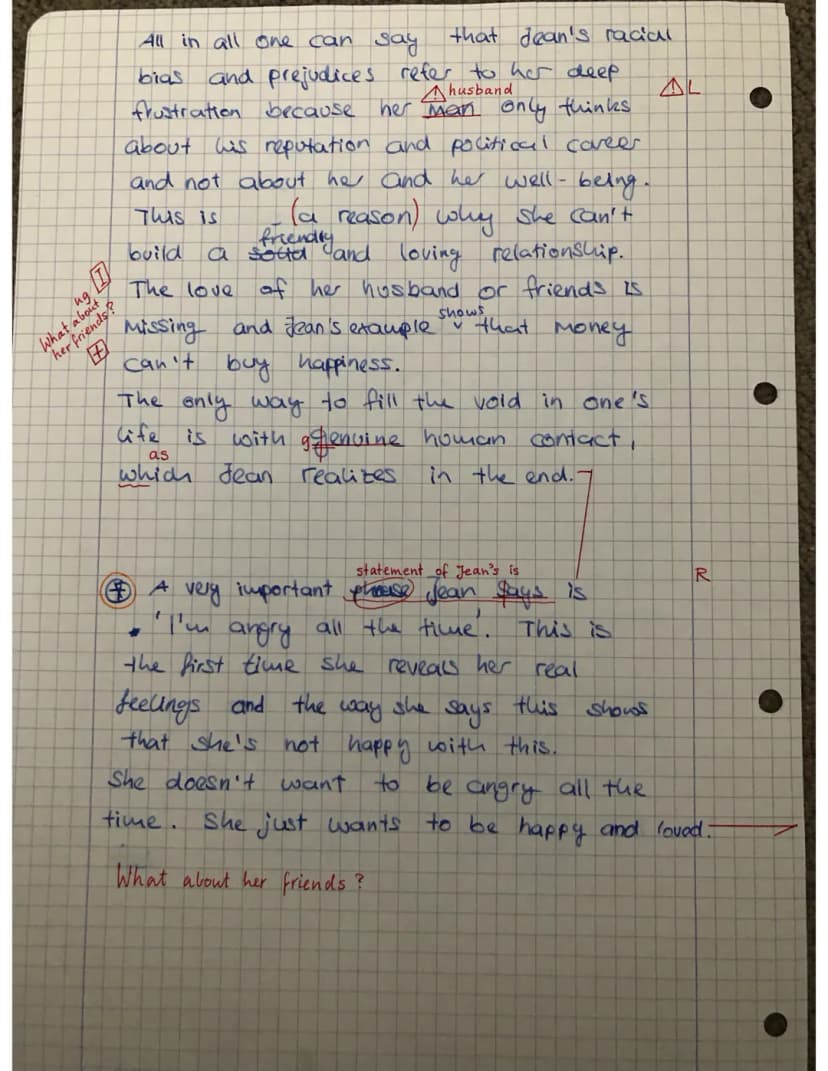 All in all one can say that Jean's racial
bias and prejudices refer to her deep
⚠ husband
frustration because her man only thinks ⚠ L
about his reputation and political career
and not about her and her well-being.
This is (a reason) why she can't
friendly
build a and loving relationship.
The love of her husband or friends is
shows
missing and Jean's example that money
What about
her friends?
can't buy happiness.
The only way to fill the void in one's
life is with genuine human contact,
as
which Jean realizes in the end.
statement of Jean's is R
A very important phrase Jean says is
'I'm angry all the time'. This is
the first time she reveals her real
feelings and the way she says this shows
that she's not happy with this.
She doesn't want to be angry all the
time. She just wants to be happy and loved.
What about her friends?